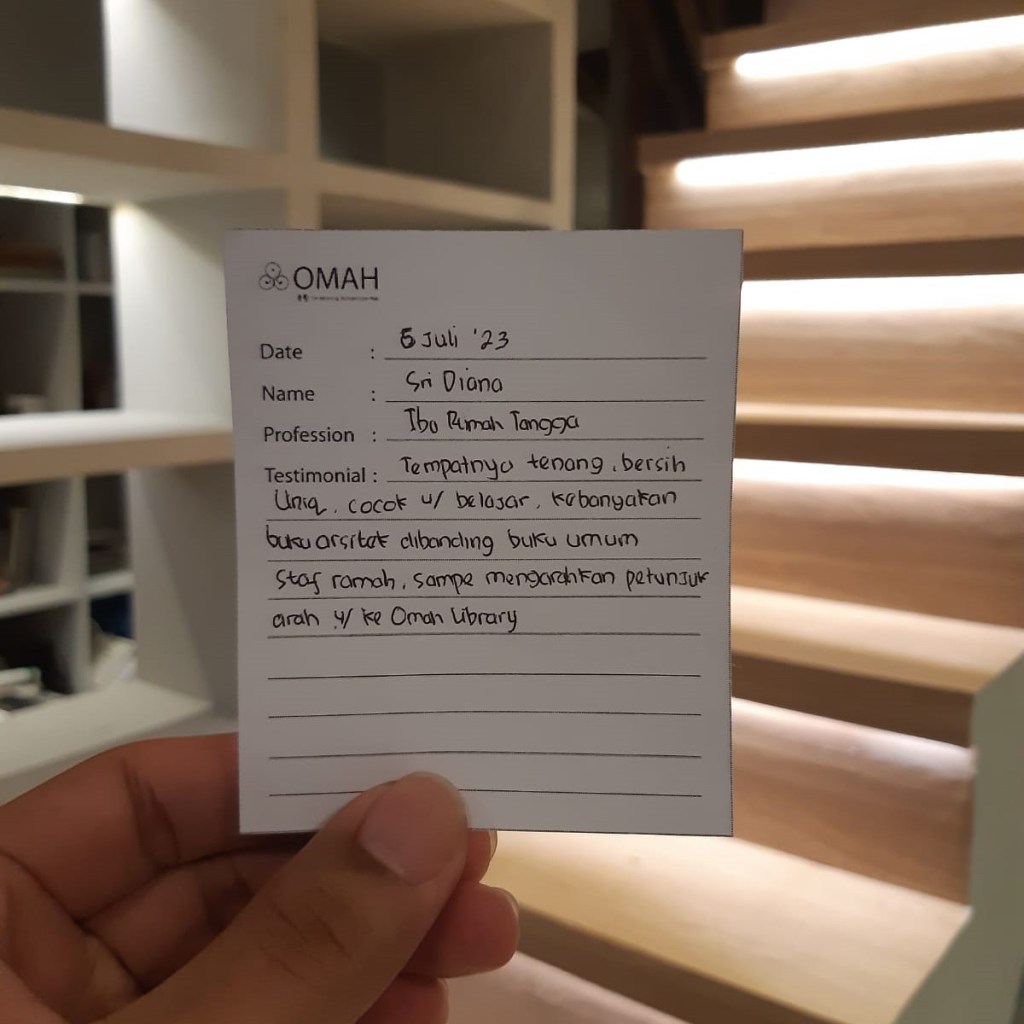 OMAH
Date : 5 Juli '23
Name : Sri Diana
Profession : Ibu Rumah Tangga
Testimonial : Tempatnya tenang, bersih
Uniq, cocok u/ belajar, kebanyakan
buku arsitek dibanding buku umum
Staf ramah, sampe mengarahkan petunjuk
arah u/ ke Omah Library